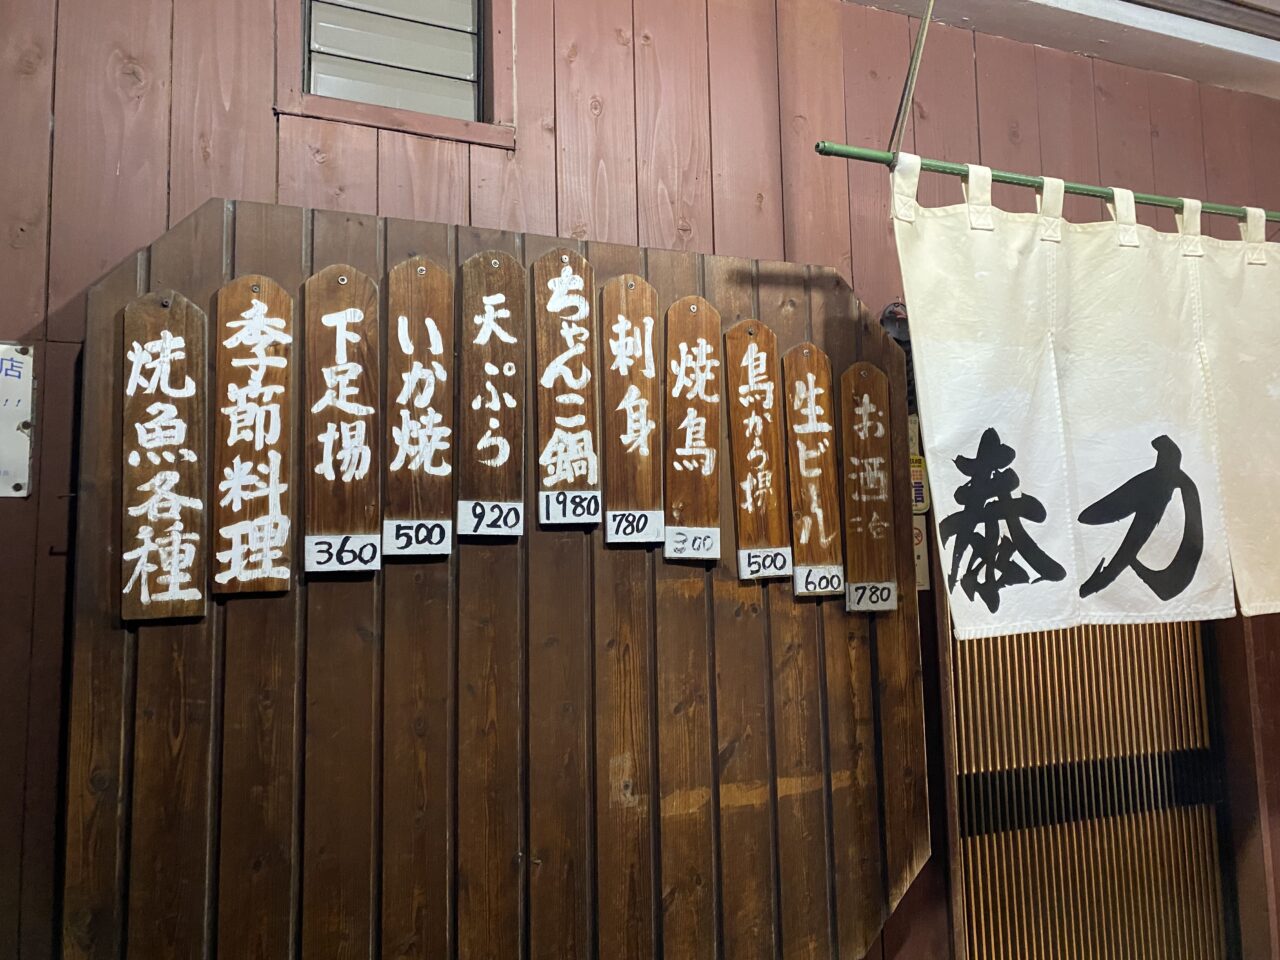 お酒
780
生ビール
600
鳥から揚
500
焼鳥
300
刺身
780
ちゃんこ鍋
1980
天ぷら
920
いか焼
500
下足揚
360
季節料理
焼魚各種
泰力
店
!!